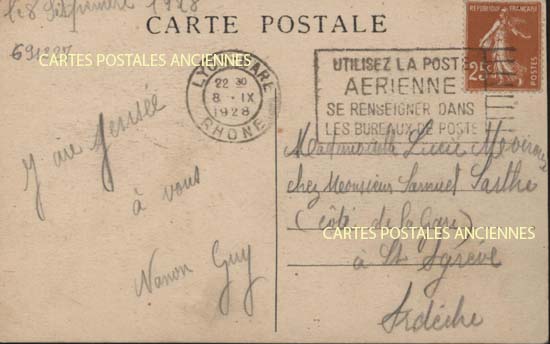 le 8 Septembre 1928
CARTE POSTALE
691227
CARTES POSTALES ANCIENNES
LYON GARE
22 30
8 - IX
1928
RHONE
UTILISEZ LA POSTE
AERIENNE
SE RENSEIGNER DANS
LES BUREAUX DE POSTE
REPUBLIQUE FRANÇAISE
25c
POSTES
pensée
à vous
Nanon Guy
Mademoiselle Lucie
chez Monsieur Samuel Sarthe
(côté de la Gare)
CARTES POSTALES ANCIENNES
à St
Ardèche